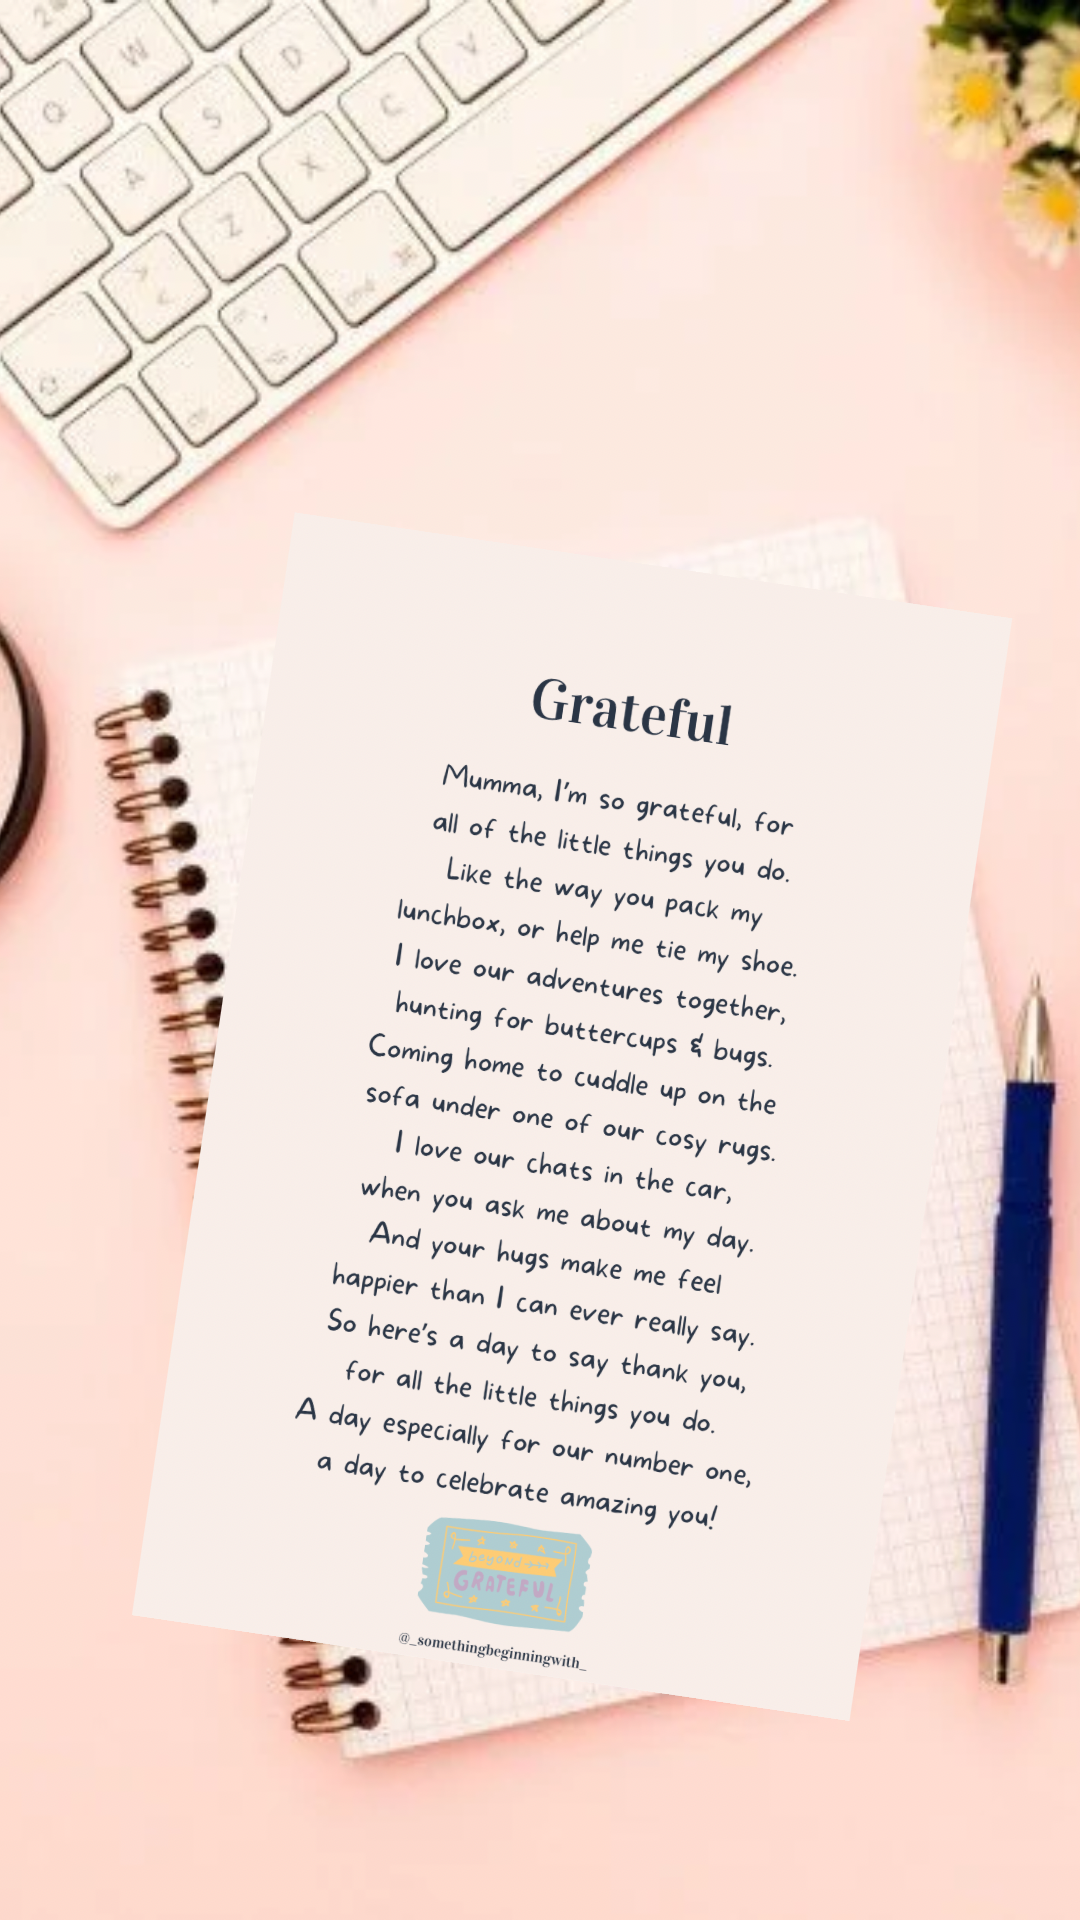 2
W
D
V
Q
S
C
A
X
Z
cmd
fn
Grateful
Mumma, I'm so grateful, for
all of the little things you do.
Like the way you pack my
lunchbox, or help me tie my shoe.
I love our adventures together,
hunting for buttercups & bugs.
Coming home to cuddle up on the
sofa under one of our cosy rugs.
I love our chats in the car,
when you ask me about my day.
And your hugs make me feel
happier than I can ever really say.
So here's a day to say thank you,
for all the little things you do.
A day especially for our number one,
a day to celebrate amazing you!
beyond
GRATEFUL
@_somethingbeginningwith_